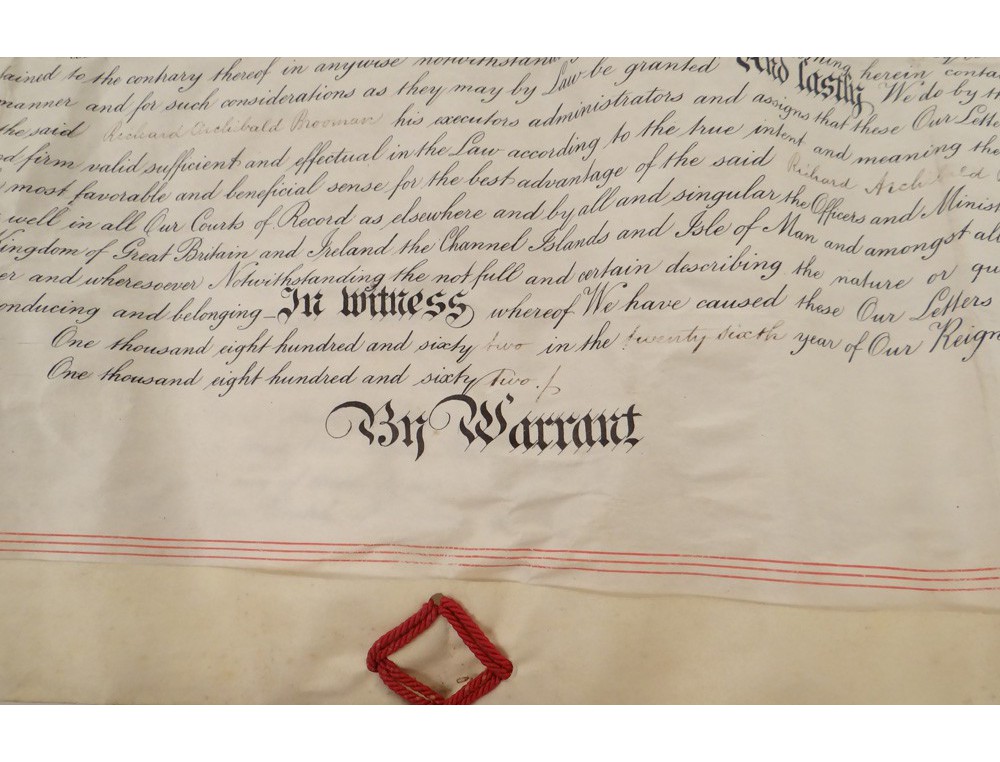 tained to the contrary thereof in anywise notwithstan
ning herein conta
manner and for such considerations as they may by Law be granted And lastly We do by th
the said Richard Archibald Brooman his executors administrators and assigns that these Our Lette
nd firm valid sufficient and effectual in the Law according to the true intent and meaning the
most favorable and beneficial sense for the best advantage of the said Richard Archibald
well in all Our Courts of Record as elsewhere and by all and singular the Officers and Minist
Kingdom of Great Britain and Ireland the Channel Islands and Isle of Man and amongst all
er and wheresoever Notwithstanding the not full and certain describing the nature or qu
onducing and belonging_ In Witness whereof We have caused these Our Letters
One thousand eight hundred and sixty two in the twenty sixth year of Our Reign
One thousand eight hundred and sixty two./
By Warrant